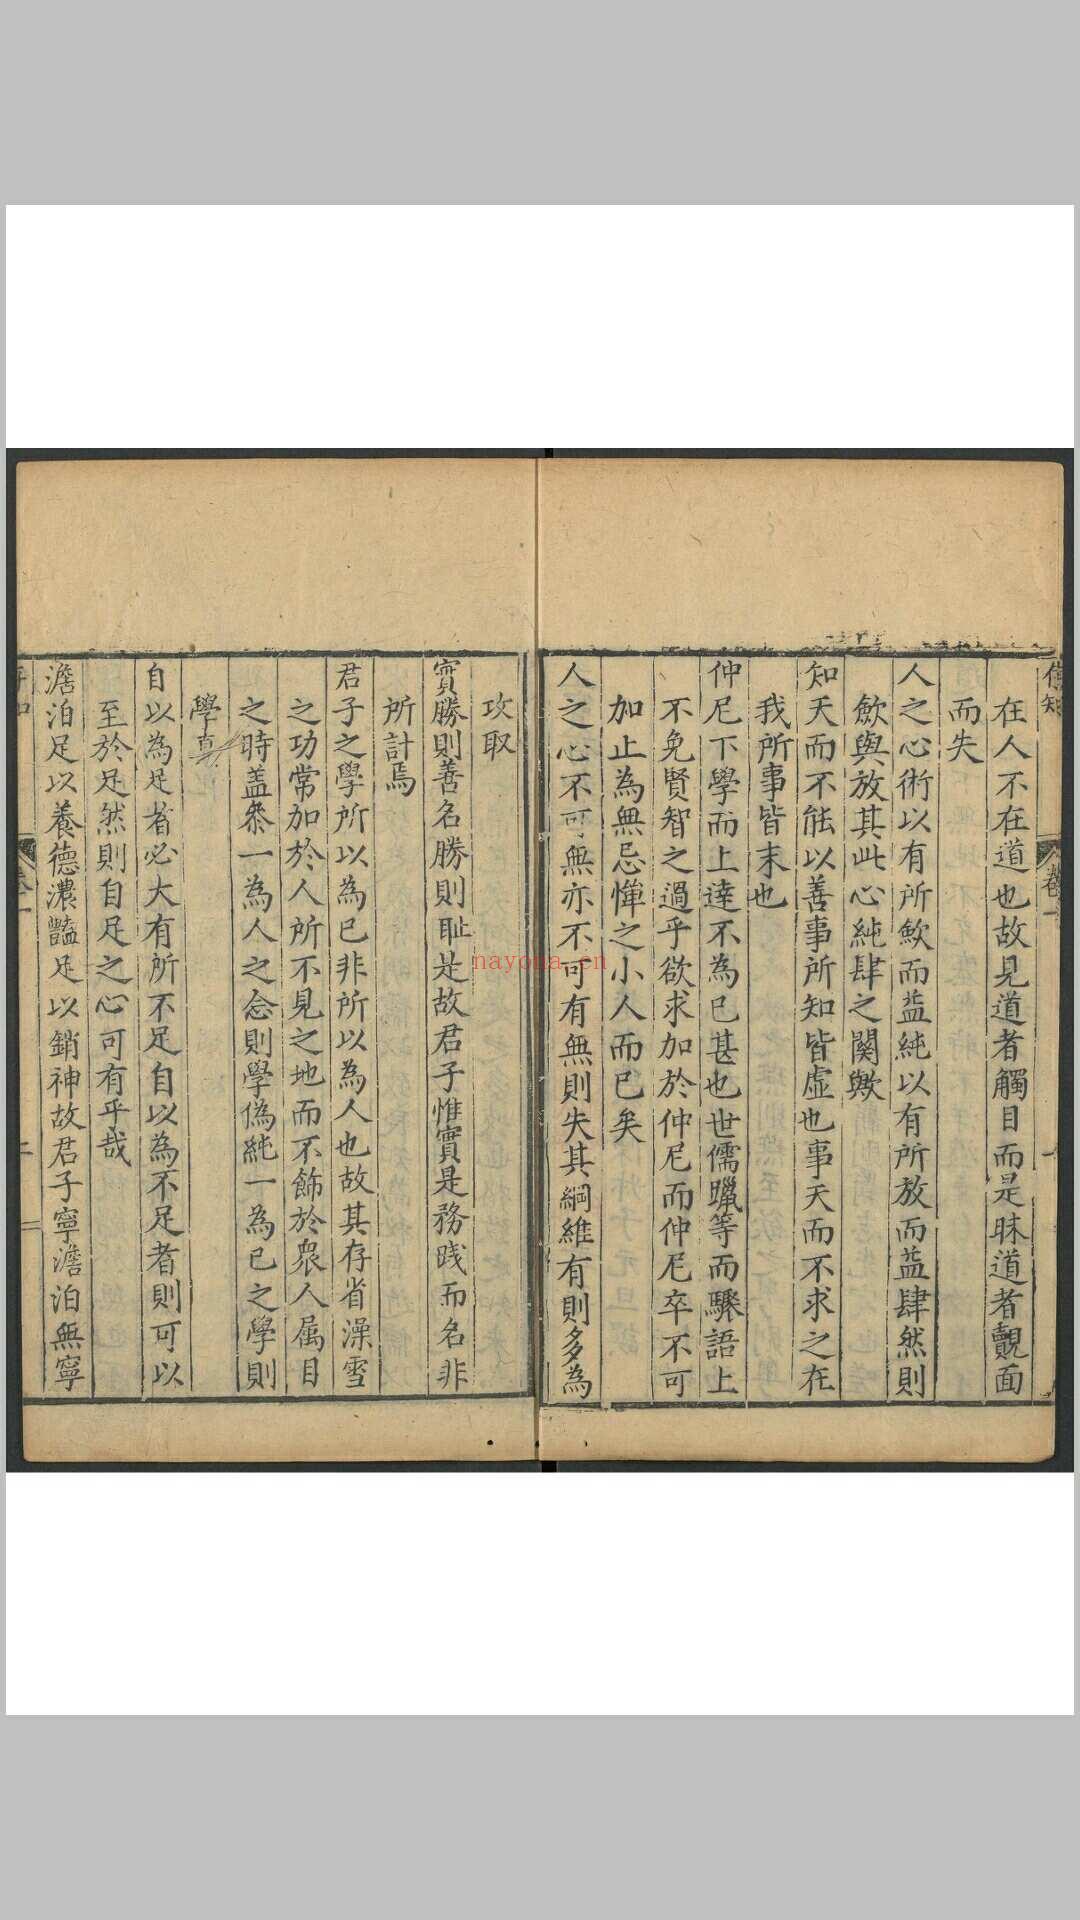 在人不在道也故見道者觸目而是昧道者覿面
而失
人之心術以有所斂而益純以有所放而益肆然則
斂與放其此心純肆之關歟
知天而不能以善事所知皆虛也事天而不求之在
我所事皆末也
仲尼下學而上達不為已甚也世儒躐等而驟語上
不免賢智之過乎欲求加於仲尼而仲尼卒不可
加止為無忌憚之小人而已矣
人之心不可無亦不可有無則失其綱維有則多為
攻取
實勝則善名勝則耻是故君子惟實是務践而名非
所計焉
君子之學所以為已非所以為人也故其存省澡雪
之功常加於人所不見之地而不飾於衆人属目
之時盖叅一為人之念則學偽純一為已之學則
學真
自以為足者必大有所不足自以為不足者則可以
至於足然則自足之心可有乎哉
澹泊足以養德濃豔足以銷神故君子寧澹泊無寧
卷一
nayona.cn